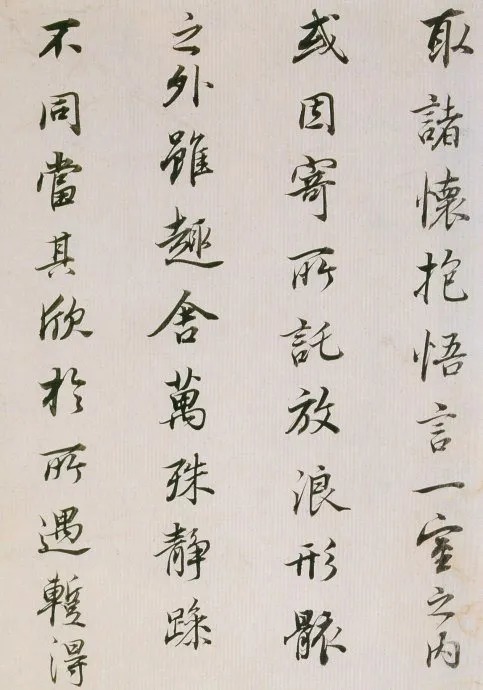 取諸懷抱悟言一室之内
或因寄所託放浪形骸
之外雖趣舍萬殊靜躁
不同當其欣於所遇蹔得